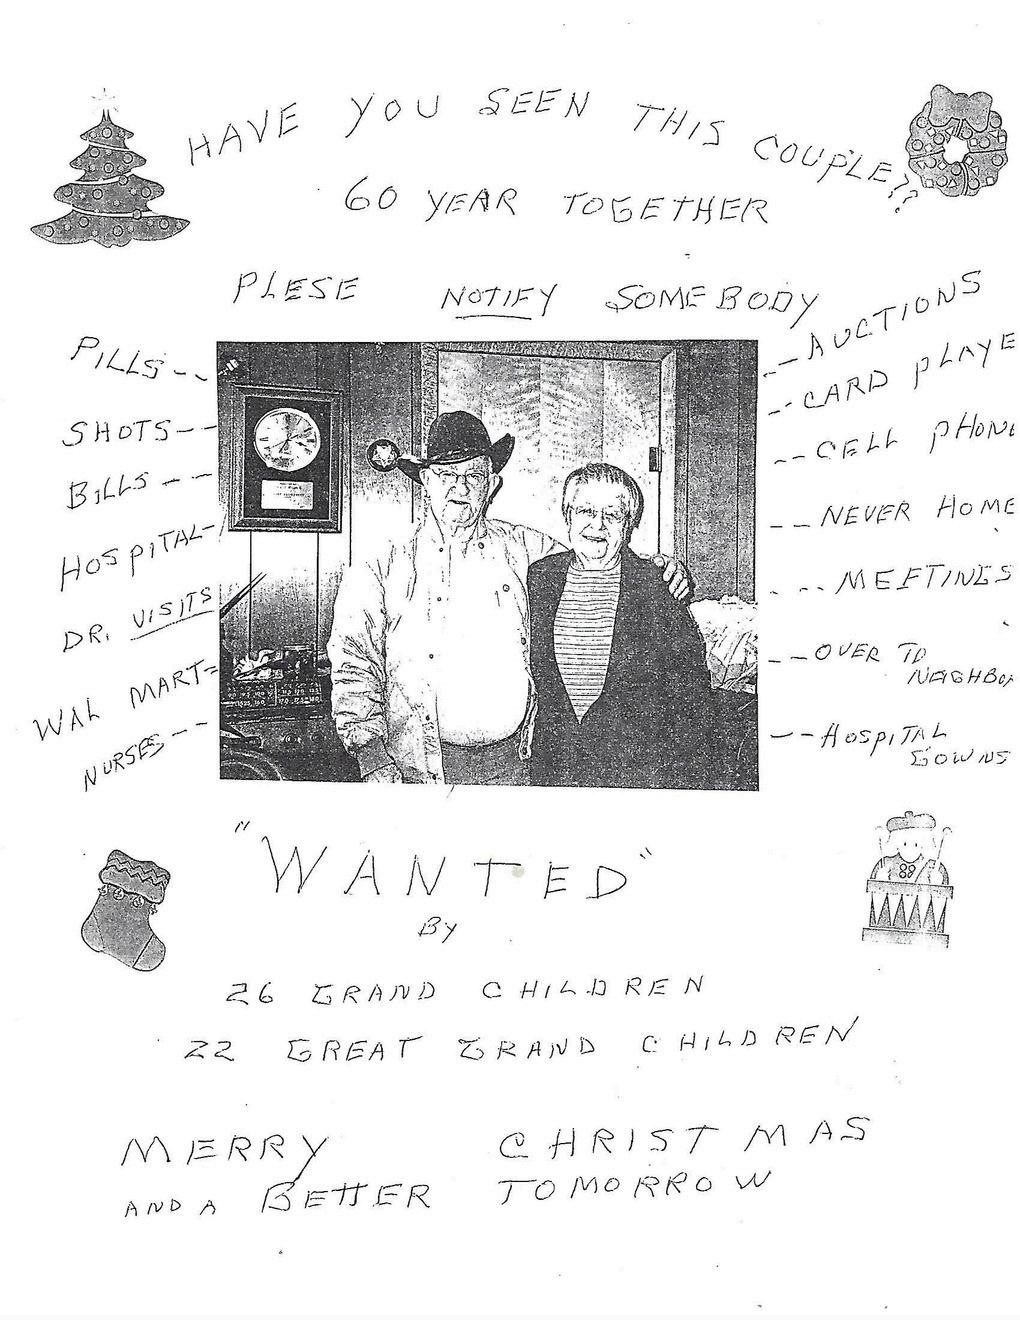 HAVE YOU SEEN THIS COUPLE??
60 YEAR TOGETHER
PLESE NOTIFY SOMEBODY
PILLS
SHOTS
BILLS
HOSPITAL
DR. VISITS
WAL MART
NURSES
AUCTIONS
CARD PLAYE
CELL PHONE
NEVER HOME
MEETINGS
OVER TO
NEIGHBO
HOSPITAL
GOWNS
"WANTED"
BY
26 GRAND CHILDREN
22 GREAT GRAND CHILDREN
MERRY CHRISTMAS
AND A BETTER TOMORROW